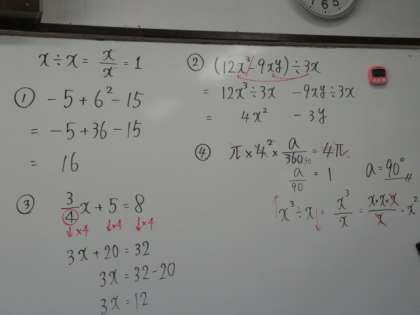 x ÷ x = x/x = 1
① -5 + 6² - 15
= -5 + 36 - 15
= 16
③ 3/4 x + 5 = 8
↓×4 ↓×4 ↓×4
3x + 20 = 32
3x = 32 - 20
3x = 12
② (12x³ - 9xy) ÷ 3x
= 12x³ ÷ 3x - 9xy ÷ 3x
= 4x² - 3y
④ π × 4² × a/360 = 4π
a/90 = 1 a = 90°
x³ ÷ x = x³/x = x·x·x/x = x²